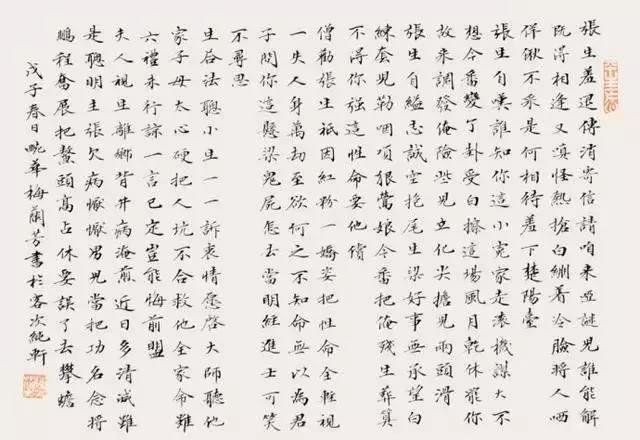 張生羞退傳消寄信請咱來亞謎兒誰能解
既得相逢又嗔怪熱搶白綳着冷臉將人哂
佯僽不乖是何相待羞下楚陽臺
張生自嘆誰知你這小冤家走滾機謀大不
想今番變了卦受白擦這場風月乾休罷你
故來調發俺險些兒立化尖擔兒兩頭滑
張生自縊志誠空抱尾生梁好事無承望白
練套兒勒咽項狠鶯娘今番把俺殘生葬算
不得你強這性命要他償
僧勸張生祇因紅粉一嬌姿把性命全輕視
一失人身萬劫至欲何之不知命無以為君
子問你這懸梁鬼屍怎去當明經進士可笑
不尋思
生啓法聰小生一一訴衷情愿啓大師聽他
家子母太心硬把人坑不合救他全家命難
六禮未行諒一言已定豈能悔前盟
夫人視生離鄉背井病淹煎近日多清減雖
是聰明主張欠病懨懨男兒當把功名念將
鵬程奮展把鰲頭高占休要誤了去攀蟾
戊子春日畹華梅蘭芳書於客次純軒